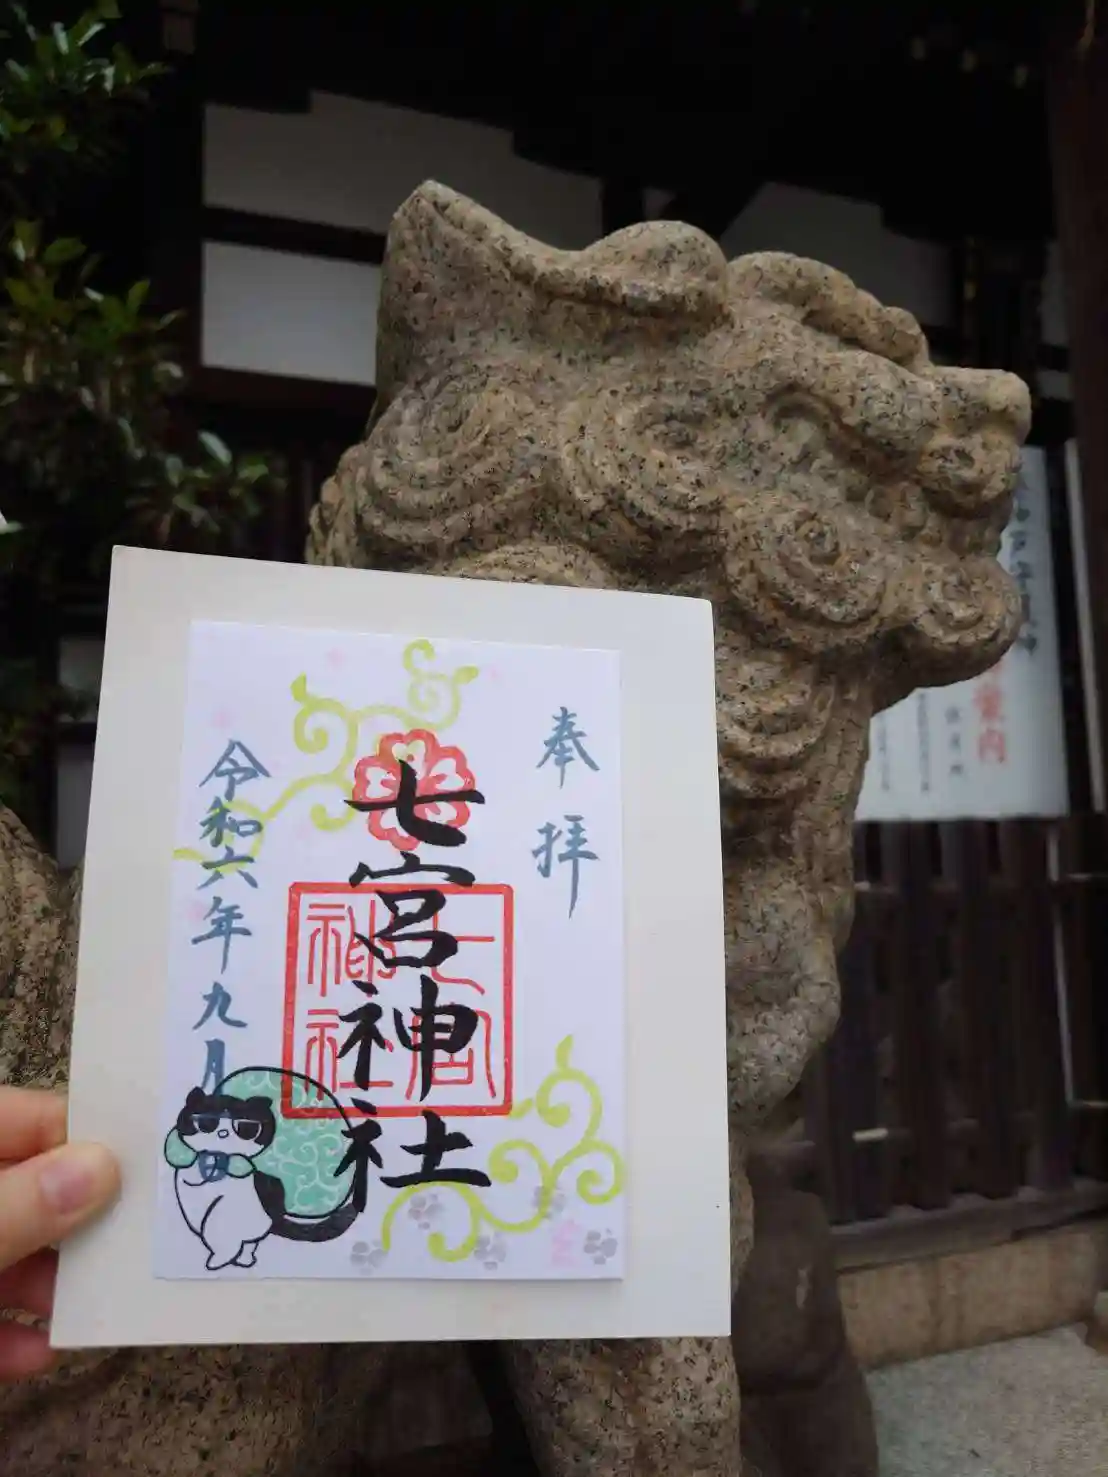 奉拝
七宮神社
七宮
神社
令和六年九月
案内